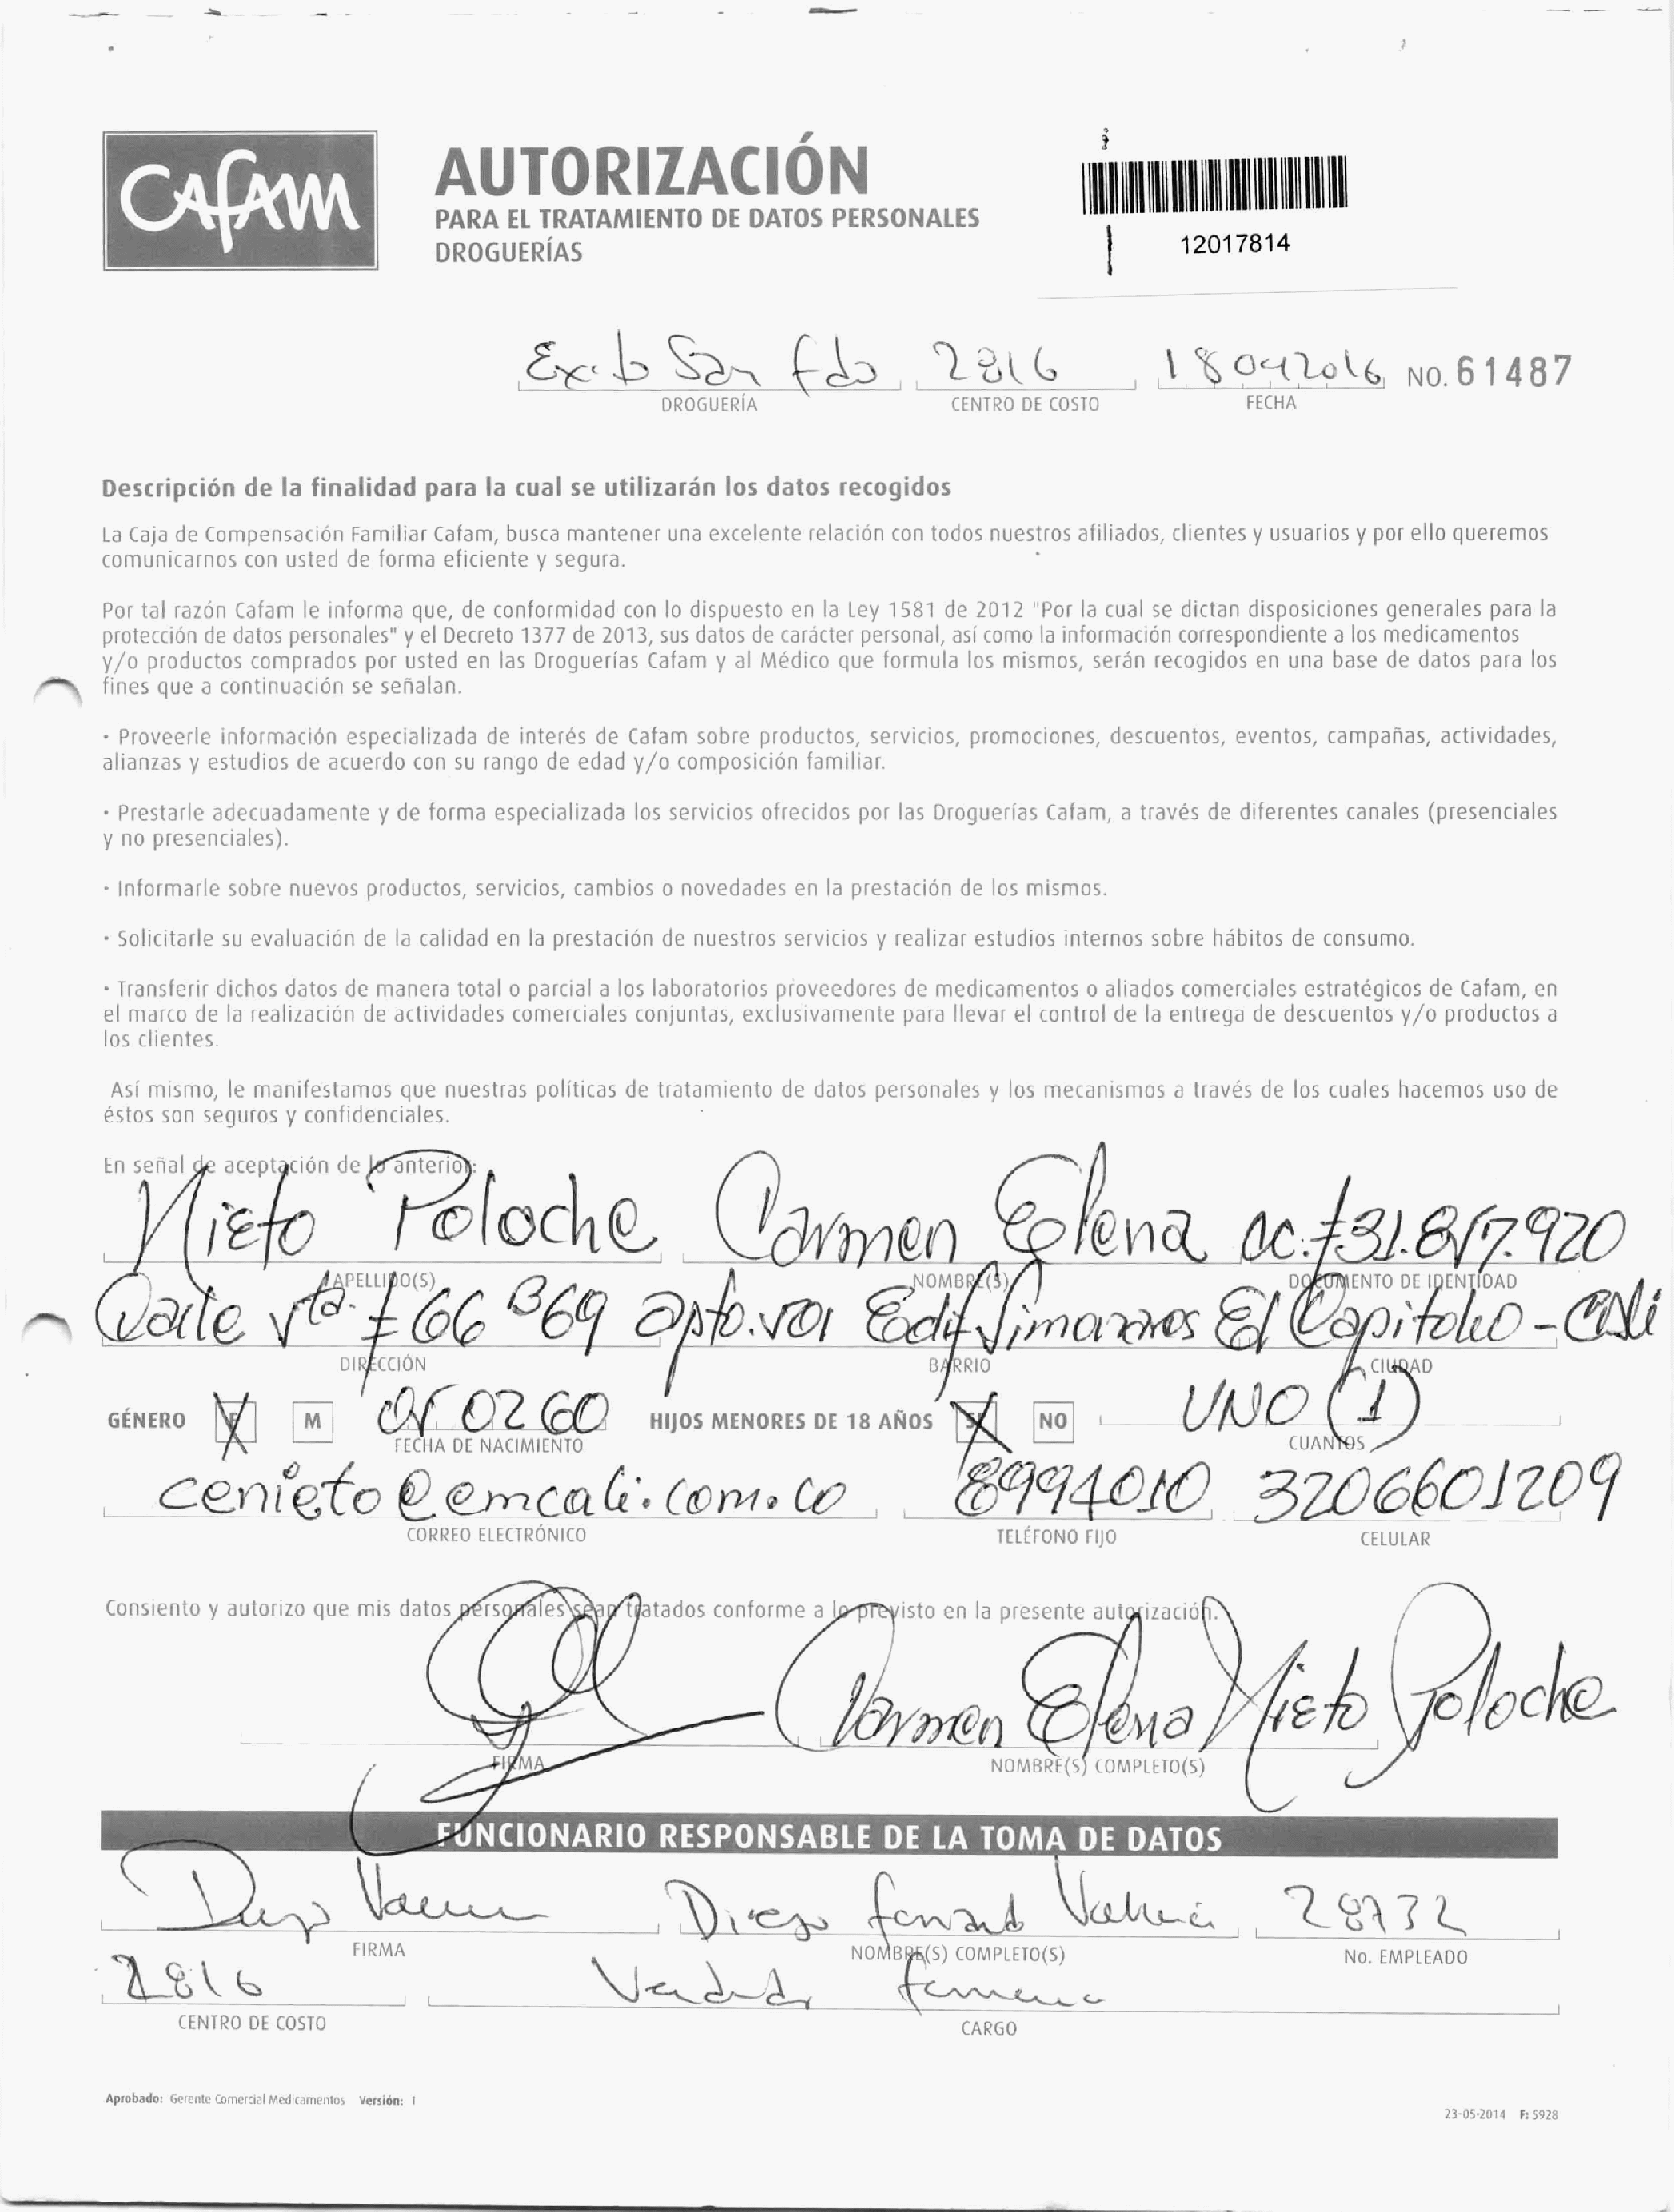 Cafam
AUTORIZACIÓN
PARA EL TRATAMIENTO DE DATOS PERSONALES
DROGUERÍAS
12017814
Exito San fdo 2816 18042016 NO. 61487
DROGUERÍA CENTRO DE COSTO FECHA
Descripción de la finalidad para la cual se utilizarán los datos recogidos
La Caja de Compensación Familiar Cafam, busca mantener una excelente relación con todos nuestros afiliados, clientes y usuarios y por ello queremos
comunicarnos con usted de forma eficiente y segura.
Por tal razón Cafam le informa que, de conformidad con lo dispuesto en la Ley 1581 de 2012 "Por la cual se dictan disposiciones generales para la
protección de datos personales" y el Decreto 1377 de 2013, sus datos de carácter personal, así como la información correspondiente a los medicamentos
y/o productos comprados por usted en las Droguerías Cafam y al Médico que formula los mismos, serán recogidos en una base de datos para los
fines que a continuación se señalan.
· Proveerle información especializada de interés de Cafam sobre productos, servicios, promociones, descuentos, eventos, campañas, actividades,
alianzas y estudios de acuerdo con su rango de edad y/o composición familiar.
· Prestarle adecuadamente y de forma especializada los servicios ofrecidos por las Droguerías Cafam, a través de diferentes canales (presenciales
y no presenciales).
· Informarle sobre nuevos productos, servicios, cambios o novedades en la prestación de los mismos.
· Solicitarle su evaluación de la calidad en la prestación de nuestros servicios y realizar estudios internos sobre hábitos de consumo.
· Transferir dichos datos de manera total o parcial a los laboratorios proveedores de medicamentos o aliados comerciales estratégicos de Cafam, en
el marco de la realización de actividades comerciales conjuntas, exclusivamente para llevar el control de la entrega de descuentos y/o productos a
los clientes.
Así mismo, le manifestamos que nuestras políticas de tratamiento de datos personales y los mecanismos a través de los cuales hacemos uso de
éstos son seguros y confidenciales.
En señal de aceptación de lo anterior:
Nieto Poloche Carmen Elena
APELLIDO(S) NOMBRE(S) DOCUMENTO DE IDENTIDAD
66 B69 apto. El Capitolio - Cali
DIRECCIÓN BARRIO CIUDAD
GÉNERO X M 0260 HIJOS MENORES DE 18 AÑOS X NO UNO (1)
FECHA DE NACIMIENTO CUANTOS
cenieto@emcali.com.co 8994010 3206601209
CORREO ELECTRÓNICO TELÉFONO FIJO CELULAR
Consiento y autorizo que mis datos personales sean tratados conforme a lo previsto en la presente autorización.
Carmen Elena Nieto Poloche
FIRMA NOMBRE(S) COMPLETO(S)
FUNCIONARIO RESPONSABLE DE LA TOMA DE DATOS
Diego 28732
FIRMA NOMBRE(S) COMPLETO(S) No. EMPLEADO
2816
CENTRO DE COSTO CARGO
Aprobado: Gerente Comercial Medicamentos Versión: 1
23-05-2014 F: 5928